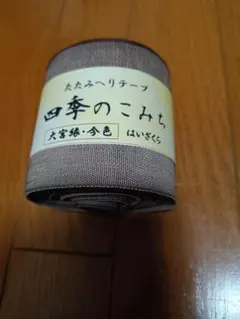 たたみへりテープ
四季のこみち
大宮縁・今色 はいざくら